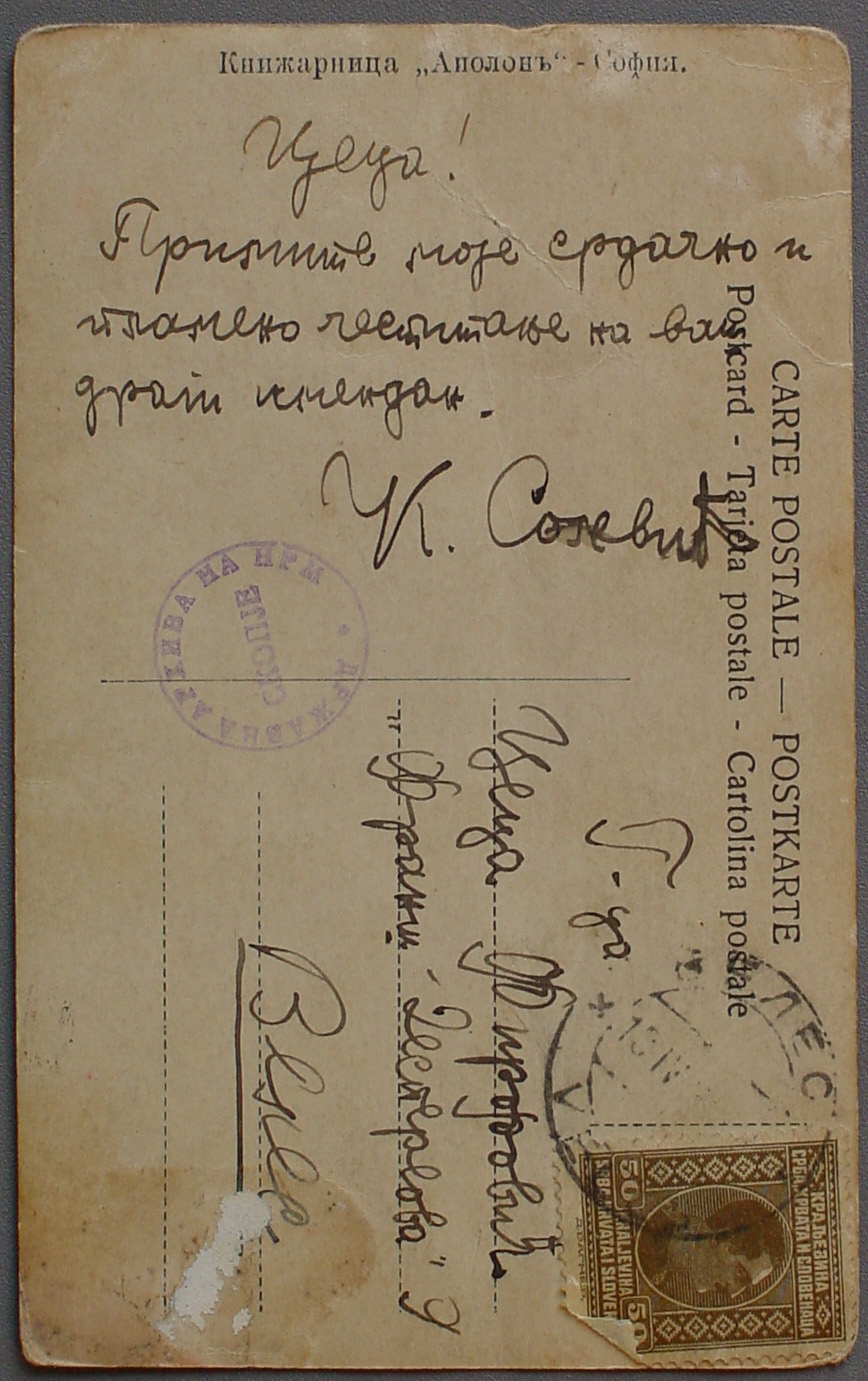 Книжарница „Аполонъ“ - София.
Цеца!
Примите моје срдачно и
пламено честитање на ваш
драги имендан.
К.
CARTE POSTALE — POSTKARTE
Postcard - Tarjeta postale - Cartolina postale
ДРЖАВНА АРХИВА НА НРМ
СКОПЈЕ
Г-ца
Цеца
„Франш-Десперова“ 9
Велес
ВЕЛЕС
КРАЉЕВИНА
СРБА ХРВАТА И СЛОВЕНАЦА
50
50
KRALJEVINA